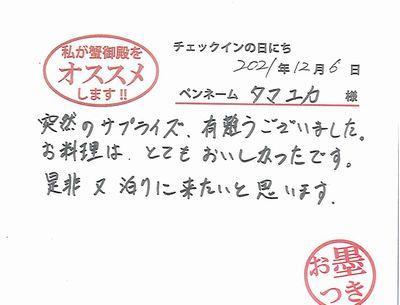 私が蟹御殿を
オススメ
します!!
チェックインの日にち
2021年12月6日
ペンネーム タマユカ 様
突然のサプライズ、有難うございました。
お料理は、とてもおいしかったです。
是非又泊りに来たいと思います.
お墨
つき